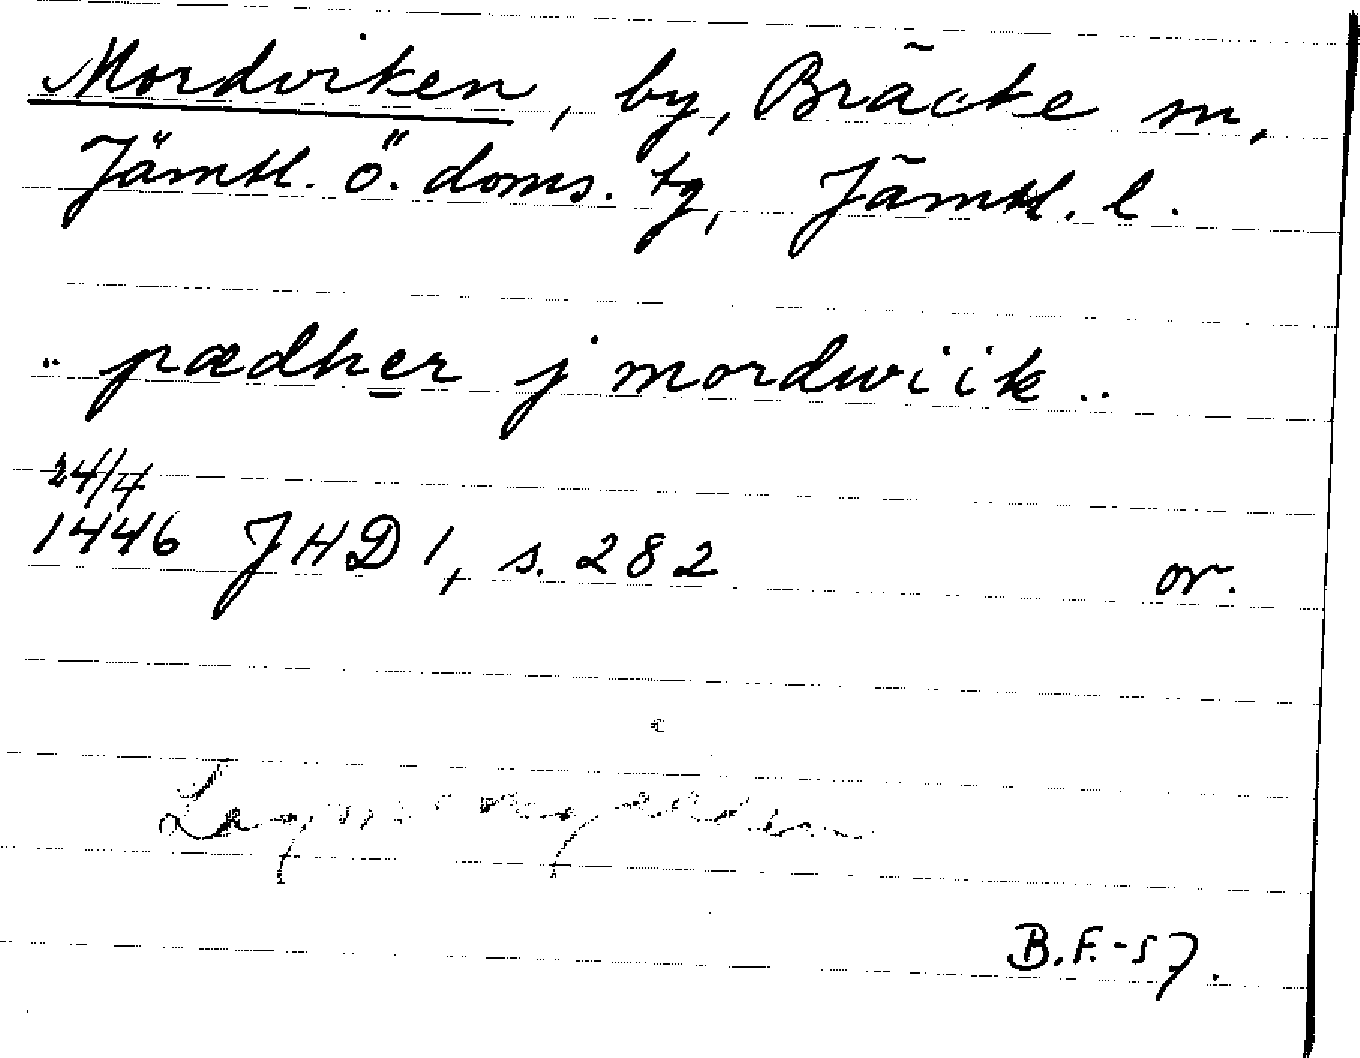 Mordviken, by, Bräcke sn,
Jämtl. ö. doms. tg, Jämtl. l.
.. pædher j mordwiik ..
24/4
1446 JHD 1, s. 282 or.
B.F.-57.